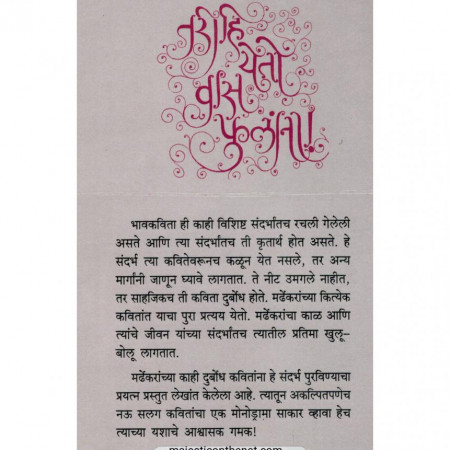 तरीहि
येतो
वास
फुलांना!
भावकविता ही काही विशिष्ट संदर्भातच रचली गेलेली
असते आणि त्या संदर्भातच ती कृतार्थ होत असते. हे
संदर्भ त्या कवितेवरूनच कळून येत नसले, तर अन्य
मार्गांनी जाणून घ्यावे लागतात. ते नीट उमगले नाहीत,
तर साहजिकच ती कविता दुर्बोध होते. मर्ढेकरांच्या कित्येक
कवितांत याचा पुरा प्रत्यय येतो. मर्ढेकरांचा काळ आणि
त्यांचे जीवन यांच्या संदर्भातच त्यातील प्रतिमा खुलू–
बोलू लागतात.
मर्ढेकरांच्या काही दुर्बोध कवितांना हे संदर्भ पुरविण्याचा
प्रयत्न प्रस्तुत लेखांत केलेला आहे. त्यातून अकल्पितपणेच
नऊ सलग कवितांचा एक मोनोड्रामा साकार व्हावा हेच
त्याच्या यशाचे आश्वासक गमक!
majesticonthenet.com